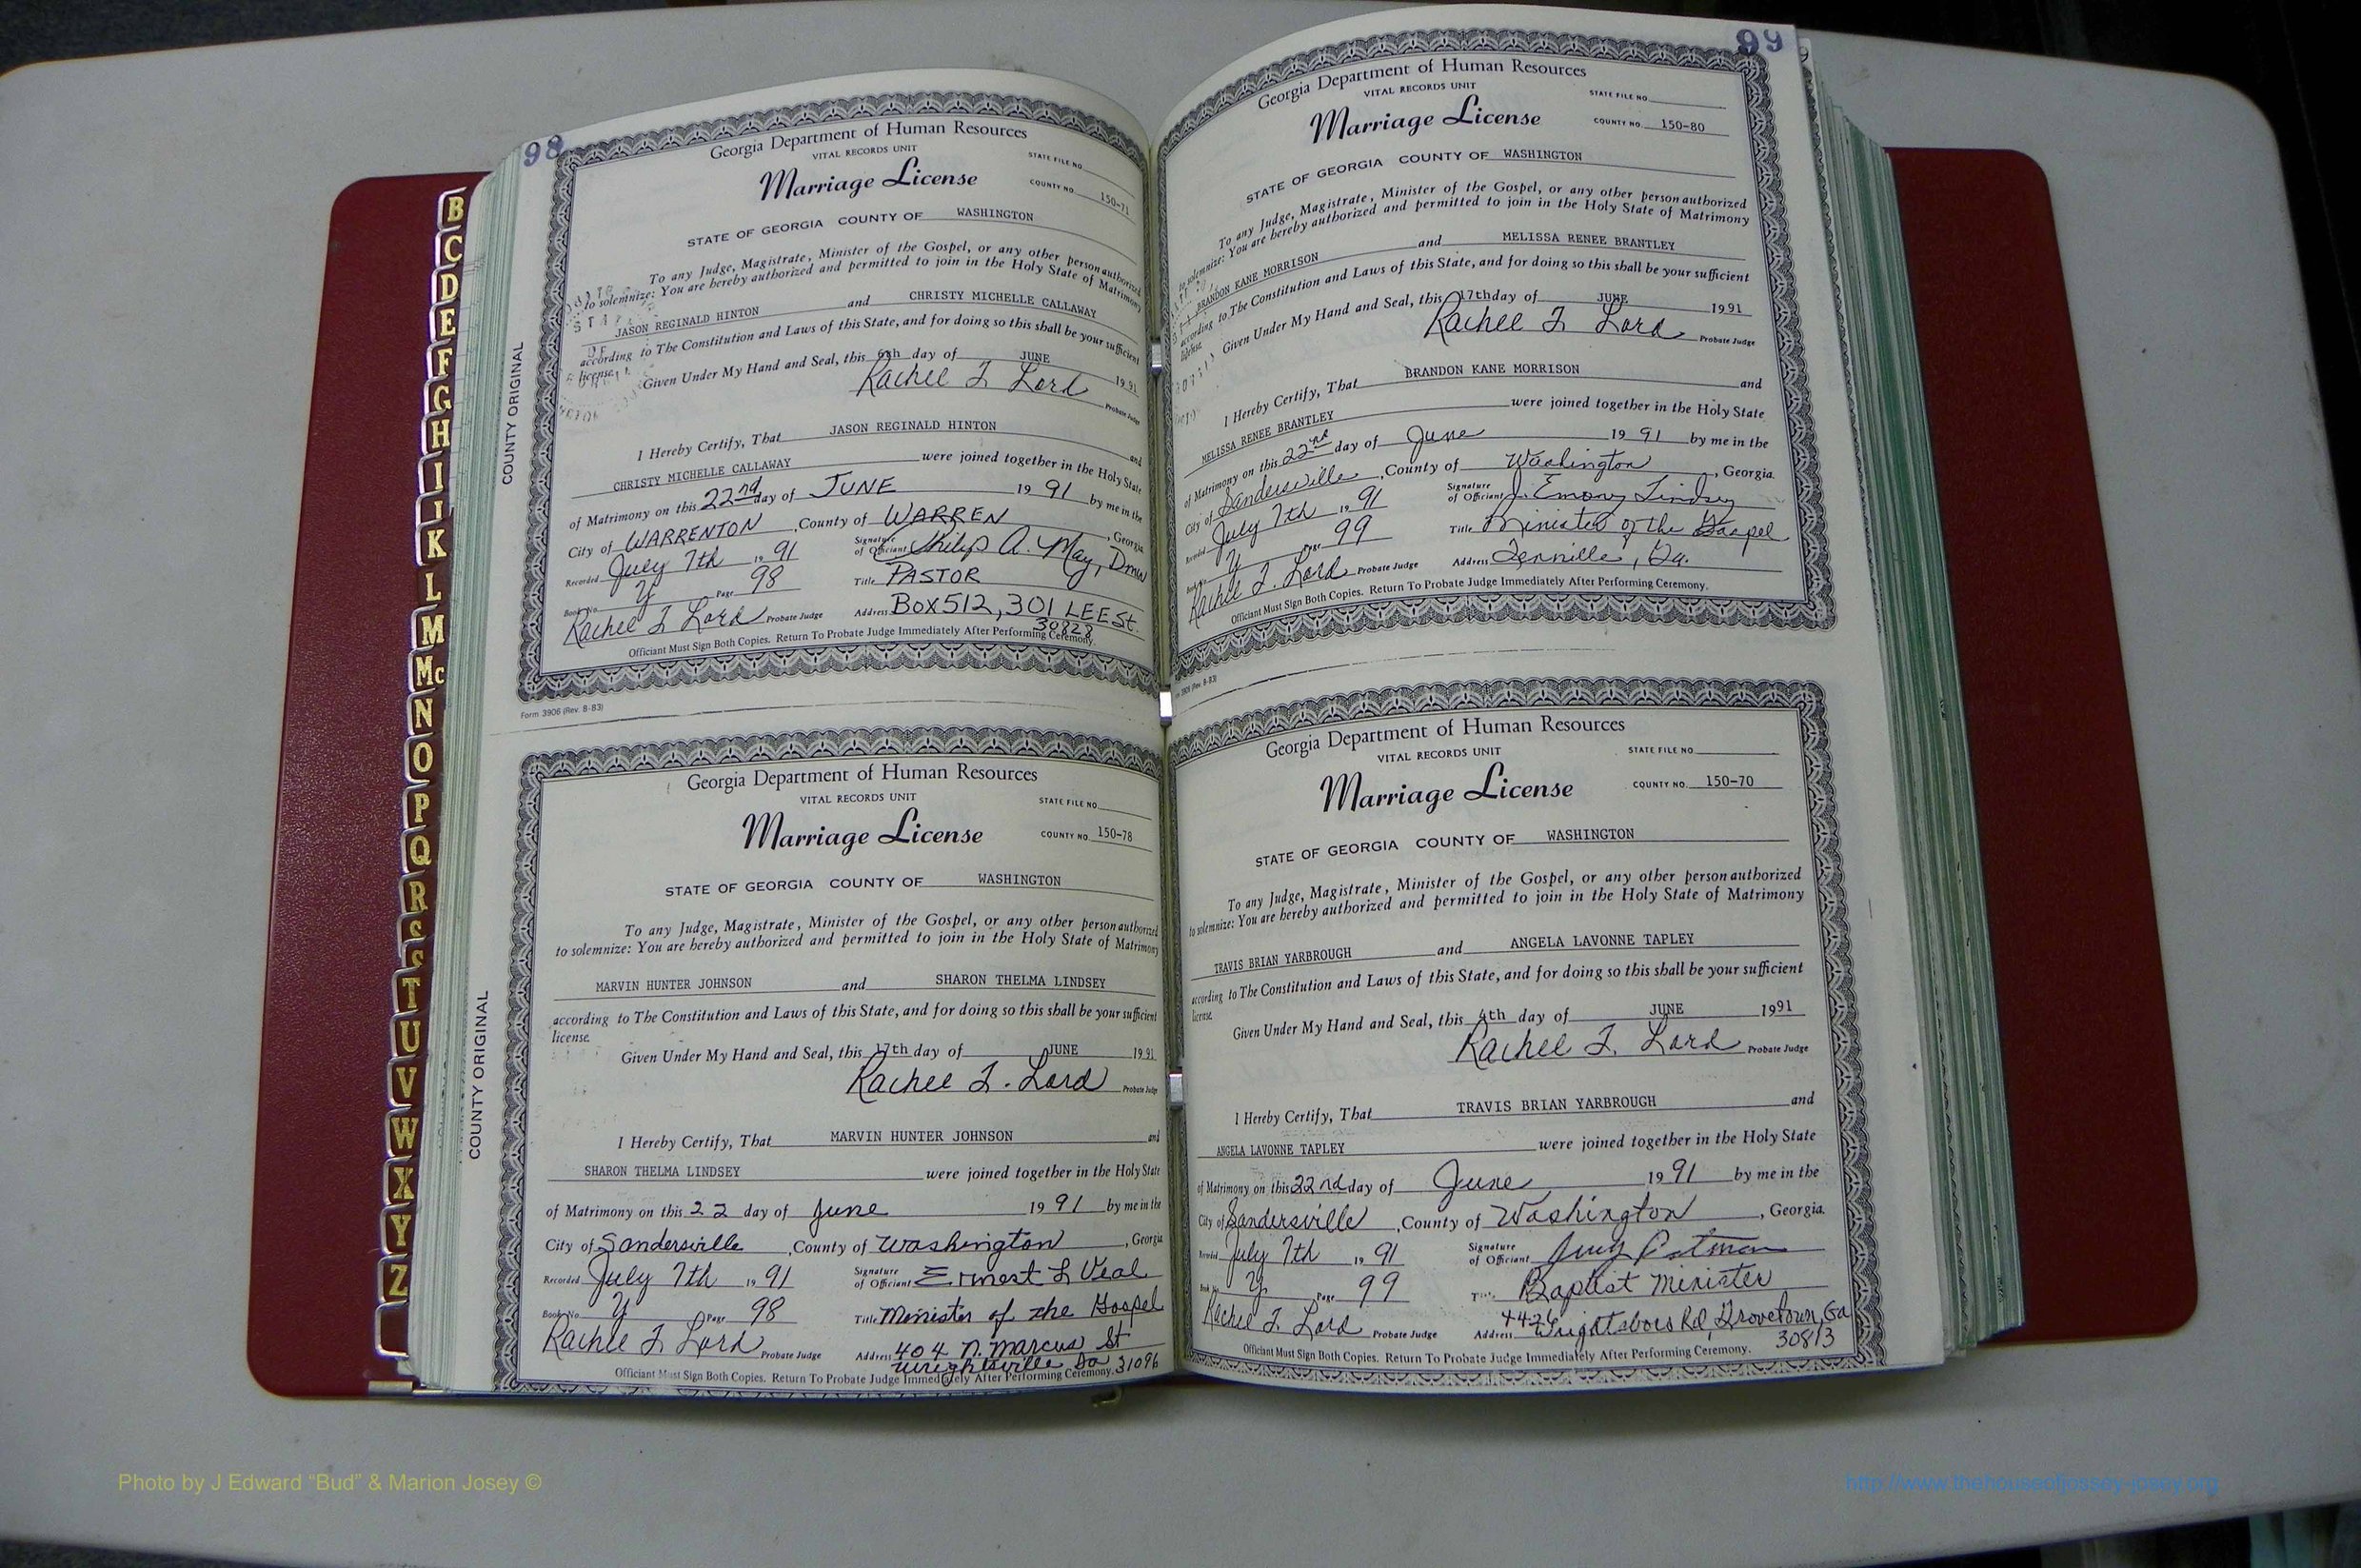 98
Georgia Department of Human Resources
VITAL RECORDS UNIT
STATE FILE NO.
Marriage License
COUNTY NO. 150-71
STATE OF GEORGIA COUNTY OF WASHINGTON
To any Judge, Magistrate, Minister of the Gospel, or any other person authorized
to solemnize: You are hereby authorized and permitted to join in the Holy State of Matrimony
JASON REGINALD HINTON and CHRISTY MICHELLE CALLAWAY
according to The Constitution and Laws of this State, and for doing so this shall be your sufficient
license.
Given Under My Hand and Seal, this 6th day of JUNE 1991
Rachel F Lord Probate Judge
I Hereby Certify, That JASON REGINALD HINTON and
CHRISTY MICHELLE CALLAWAY were joined together in the Holy State
of Matrimony on this 22nd day of JUNE 19 91 by me in the
City of WARRENTON, County of WARREN, Georgia
Recorded July 7th 19 91 Signature of Officiant Philip A. May, Dmin
Book No. Y Page 98 Title PASTOR
Rachel F Lord Probate Judge Address Box 512, 301 LEE St.
30828
Officiant Must Sign Both Copies. Return To Probate Judge Immediately After Performing Ceremony.
Form 3906 (Rev. 8-83)
COUNTY ORIGINAL
Georgia Department of Human Resources
VITAL RECORDS UNIT
STATE FILE NO.
Marriage License
COUNTY NO. 150-78
STATE OF GEORGIA COUNTY OF WASHINGTON
To any Judge, Magistrate, Minister of the Gospel, or any other person authorized
to solemnize: You are hereby authorized and permitted to join in the Holy State of Matrimony
MARVIN HUNTER JOHNSON and SHARON THELMA LINDSEY
according to The Constitution and Laws of this State, and for doing so this shall be your sufficient
license.
Given Under My Hand and Seal, this 17th day of JUNE 1991
Rachel F. Lord Probate Judge
I Hereby Certify, That MARVIN HUNTER JOHNSON and
SHARON THELMA LINDSEY were joined together in the Holy State
of Matrimony on this 22 day of June 19 91 by me in the
City of Sandersville, County of Washington, Georgia
Recorded July 7th 19 91 Signature of Officiant Ernest L Veal
Book No. Y Page 98 Title Minister of the Gospel
Rachel F Lord Probate Judge Address 404 N. Marcus St
Wrightsville, Ga 31096
Officiant Must Sign Both Copies. Return To Probate Judge Immediately After Performing Ceremony.
COUNTY ORIGINAL
99
Georgia Department of Human Resources
VITAL RECORDS UNIT
STATE FILE NO.
Marriage License
COUNTY NO. 150-80
STATE OF GEORGIA COUNTY OF WASHINGTON
To any Judge, Magistrate, Minister of the Gospel, or any other person authorized
to solemnize: You are hereby authorized and permitted to join in the Holy State of Matrimony
BRANDON KANE MORRISON and MELISSA RENEE BRANTLEY
according to The Constitution and Laws of this State, and for doing so this shall be your sufficient
license.
Given Under My Hand and Seal, this 17th day of JUNE 1991
Rachel F Lord Probate Judge
I Hereby Certify, That BRANDON KANE MORRISON and
MELISSA RENEE BRANTLEY were joined together in the Holy State
of Matrimony on this 22nd day of June 19 91 by me in the
City of Sandersville, County of Washington, Georgia.
Recorded July 7th 19 91 Signature of Officiant J. Emory Lindsey
Book No. Y Page 99 Title Minister of the Gospel
Rachel F. Lord Probate Judge Address Tennille, Ga.
Officiant Must Sign Both Copies. Return To Probate Judge Immediately After Performing Ceremony.
Form 3906 (Rev. 8-83)
Georgia Department of Human Resources
VITAL RECORDS UNIT
STATE FILE NO.
Marriage License
COUNTY NO. 150-70
STATE OF GEORGIA COUNTY OF WASHINGTON
To any Judge, Magistrate, Minister of the Gospel, or any other person authorized
to solemnize: You are hereby authorized and permitted to join in the Holy State of Matrimony
TRAVIS BRIAN YARBROUGH and ANGELA LAVONNE TAPLEY
according to The Constitution and Laws of this State, and for doing so this shall be your sufficient
license.
Given Under My Hand and Seal, this 4th day of JUNE 1991
Rachel F. Lord Probate Judge
I Hereby Certify, That TRAVIS BRIAN YARBROUGH and
ANGELA LAVONNE TAPLEY were joined together in the Holy State
of Matrimony on this 22nd day of June 19 91 by me in the
City of Sandersville, County of Washington, Georgia.
Recorded July 7th 19 91 Signature of Officiant
Book No. Y Page 99 Title Baptist Minister
Rachel F. Lord Probate Judge Address 4426 Wrightsboro Rd, Grovetown, Ga
30813
Officiant Must Sign Both Copies. Return To Probate Judge Immediately After Performing Ceremony.
B
C
D
E
F
G
H
I
J
K
L
M
Mc
N
O
P
Q
R
S
S
T
U
V
W
X
Y
Z
Photo by J Edward “Bud” & Marion Josey ©
http://www.thehouseofjossey-josey.org